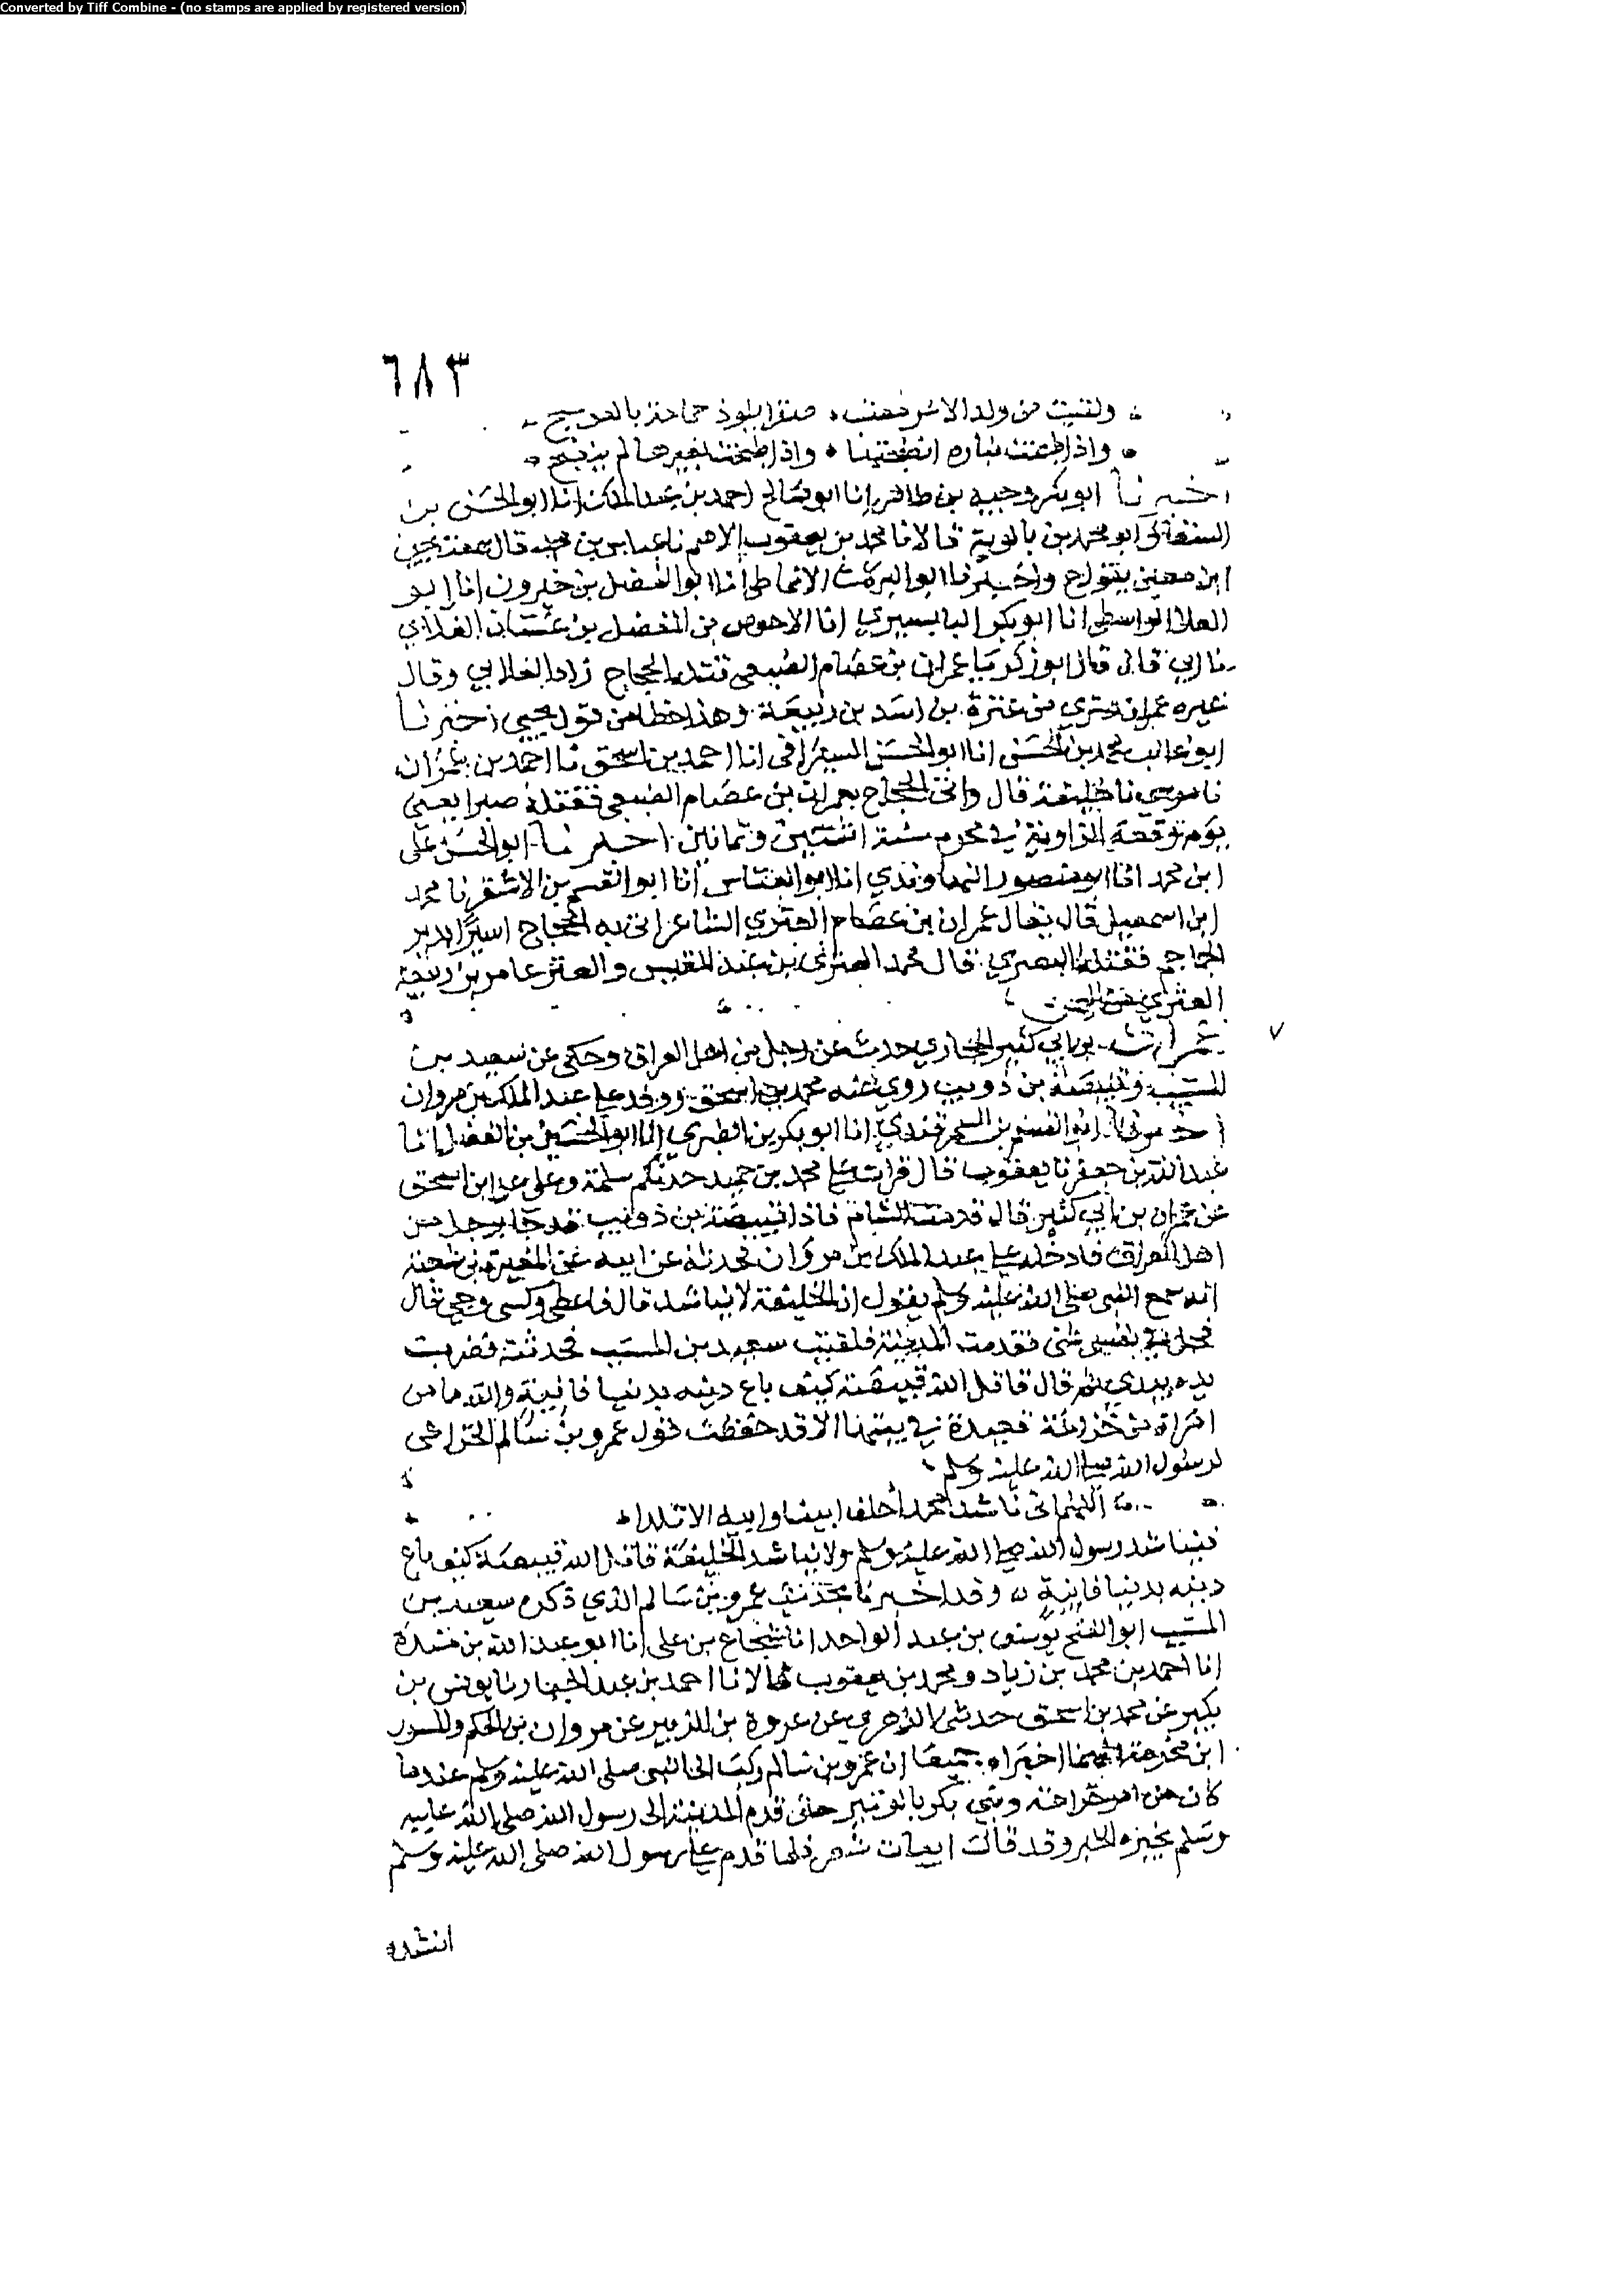 Converted by Tiff Combine - (no stamps are applied by registered version)
٦٨٣
ولقيت من ولد الاشر معتب صقرا يلوذ حمامه بالعوسج
واذا طبخت بناره انضجتها واذا طبخت بغيرها لم ينضج
اخبرنا ابو بكر وجيه بن طاهر انا ابو صالح احمد بن عبد الملك انا ابو الحسن بن
السقا وابو محمد بن بالوية قالا نا محمد بن يعقوب الاصم نا عباس بن محمد قال سمعت يحيى
ابن معين يقول ح واخبرنا ابو البركات الانماطي انا ابو الفضل بن خيرون انا ابو
العلا الواسطي انا ابو بكر البابسيري انا الاحوص بن المفضل بن غسان الغلابي
نا ابي قال قال ابو زكريا عمران بن عصام الضبعي قتله الحجاج زاد الغلابي وقال
غيره عمران عنزي من عنزة بن اسد بن ربيعة وهذا خطا من قول يحيى اخبرنا
ابو غالب محمد بن الحسن انا ابو الحسن السيرافي انا احمد بن اسحق نا احمد بن عمران
نا موسى نا خليفة قال واتى الحجاج بعمران بن عصام الضبعي فقتله صبرا يعني
يوم وقعة الزاوية في محرم سنة اثنتين وثمانين اخبرنا ابو الحسن علي
ابن محمد انا ابو منصور النهاوندي انا ابو العباس انا ابو القسم بن الاشقر نا محمد
ابن اسمعيل قال يقال عمران بن عصام العنزي الشاعر اتى به الحجاج اسيرا بدير
الجماجم فقتله البصري قال محمد العنزي بن عبد القيس والعنز عامر بن ربيعة
العنزي من اليمن
عمران بن ابي كثير الحجازي حدث عن رجل من اهل العراق وحكى عن سعيد بن
المسيب وقبيصة بن ذويب روى عنه محمد بن اسحق ووفد على عبد الملك بن مروان
اخبرنا ابو القسم بن السمرقندي انا ابو بكر بن الطبري انا ابو الحسين بن الفضل انا
عبد الله بن جعفر نا يعقوب قال قرات على محمد بن حميد حدثكم سلمة وعلي عن ابن اسحق
عن عمران بن ابي كثير قال قدمت الشام فاذا قبيصة بن ذويب قد جا برجل من
اهل العراق فادخله على عبد الملك بن مروان فحدثه عن ابيه عن المغيرة بن شعبة
انه سمع النبي صلى الله عليه وسلم يقول ان الخليفة لا يناشد قال فاعطي وكسي وحبي قال
فحك في نفسي شي فقدمت المدينة فلقيت سعيد بن المسيب فحدثته فضرب
يده بيدي ثم قال قاتل الله قبيصة كيف باع دينه بدنيا فانية والله ما من
امراة من خزاعة قعيدة في بيتها الا قد حفظت قول عمرو بن سالم الخزاعي
لرسول الله صلى الله عليه وسلم
اللهم اني ناشد محمدا حلف ابينا وابيه الاتلدا
فيناشد رسول الله صلى الله عليه وسلم ولا يناشد الخليفة قاتل الله قبيصة كيف باع
دينه بدنيا فانية وقد اخبرنا بحديث عمرو بن سالم الذي ذكره سعيد بن
المسيب ابو الفتح يوسف بن عبد الواحد انا شجاع بن علي انا ابو عبد الله بن مندة
انا احمد بن محمد بن زياد ومحمد بن يعقوب قالا نا احمد بن عبد الجبار نا يونس بن
بكير عن محمد بن اسحق حدثني الزهري عن عروة بن الزبير عن مروان بن الحكم والمسور
ابن مخرمة انهما اخبراه جميعا ان عمرو بن سالم ركب الى النبي صلى الله عليه وسلم عندما
كان من امر خزاعة وبني بكر بالوتير حتى قدم المدينة الى رسول الله صلى الله عليه
وسلم بخبره الخبر وقد قال ابيات شعر فلما قدم على رسول الله صلى الله عليه وسلم
انشده